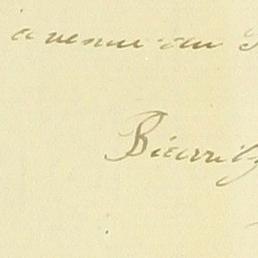 avenue du
Biarritz